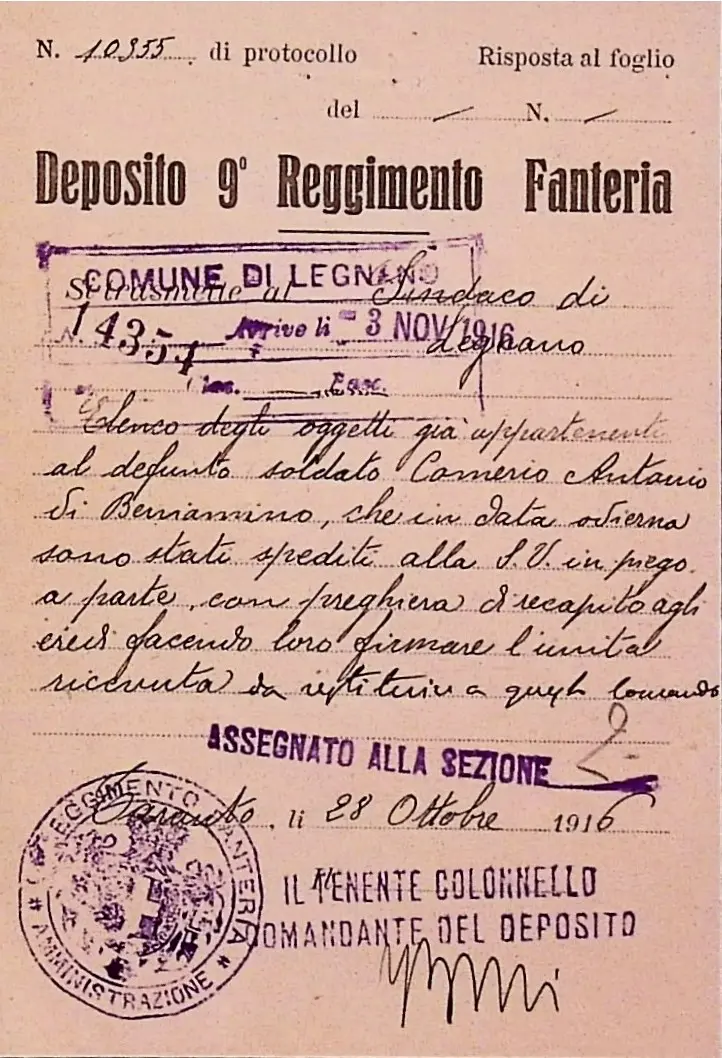 N. 10355 di protocollo
Risposta al foglio
del / N. /
Deposito 9° Reggimento Fanteria
COMUNE DI LEGNANO
Si trasmette al Sindaco di
N. 14354 Arrivo li - 3 NOV 1916
Legnano
Clas. Fasc.
Elenco degli oggetti già appartenenti
al defunto soldato Comerio Antonio
di Beniamino, che in data odierna
sono stati spediti alla S.V. in piego
a parte, con preghiera di recapito agli
eredi facendo loro firmare l'unita
ricevuta da restituire a questo Comando
ASSEGNATO ALLA SEZIONE 2
Taranto, li 28 Ottobre 1916
REGGIMENTO FANTERIA
* AMMINISTRAZIONE *
IL TENENTE COLONNELLO
COMANDANTE DEL DEPOSITO